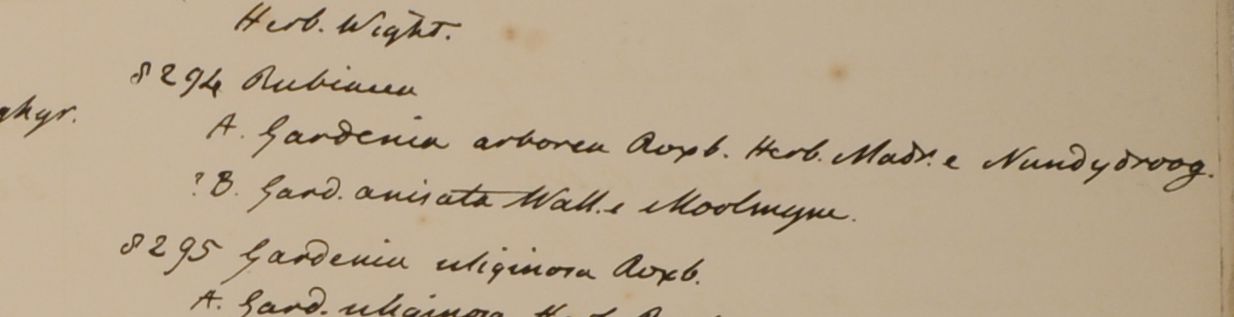 Herb. Wight.
8294 Rubiacea
ghyr.
A. Gardenia arborea Roxb. Herb. Madr. e Nundydroog.
? B. Gard. anisata Wall. e Moolmyne.
8295 Gardenia uliginosa Roxb.
A. Gard. uliginosa Herb.